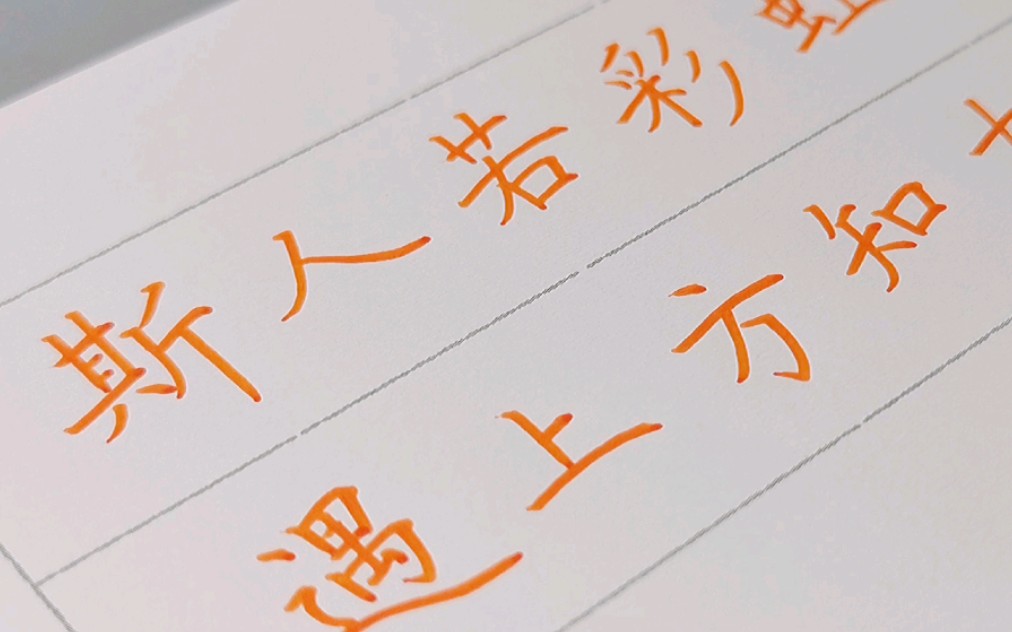 斯人若彩虹
遇上方知